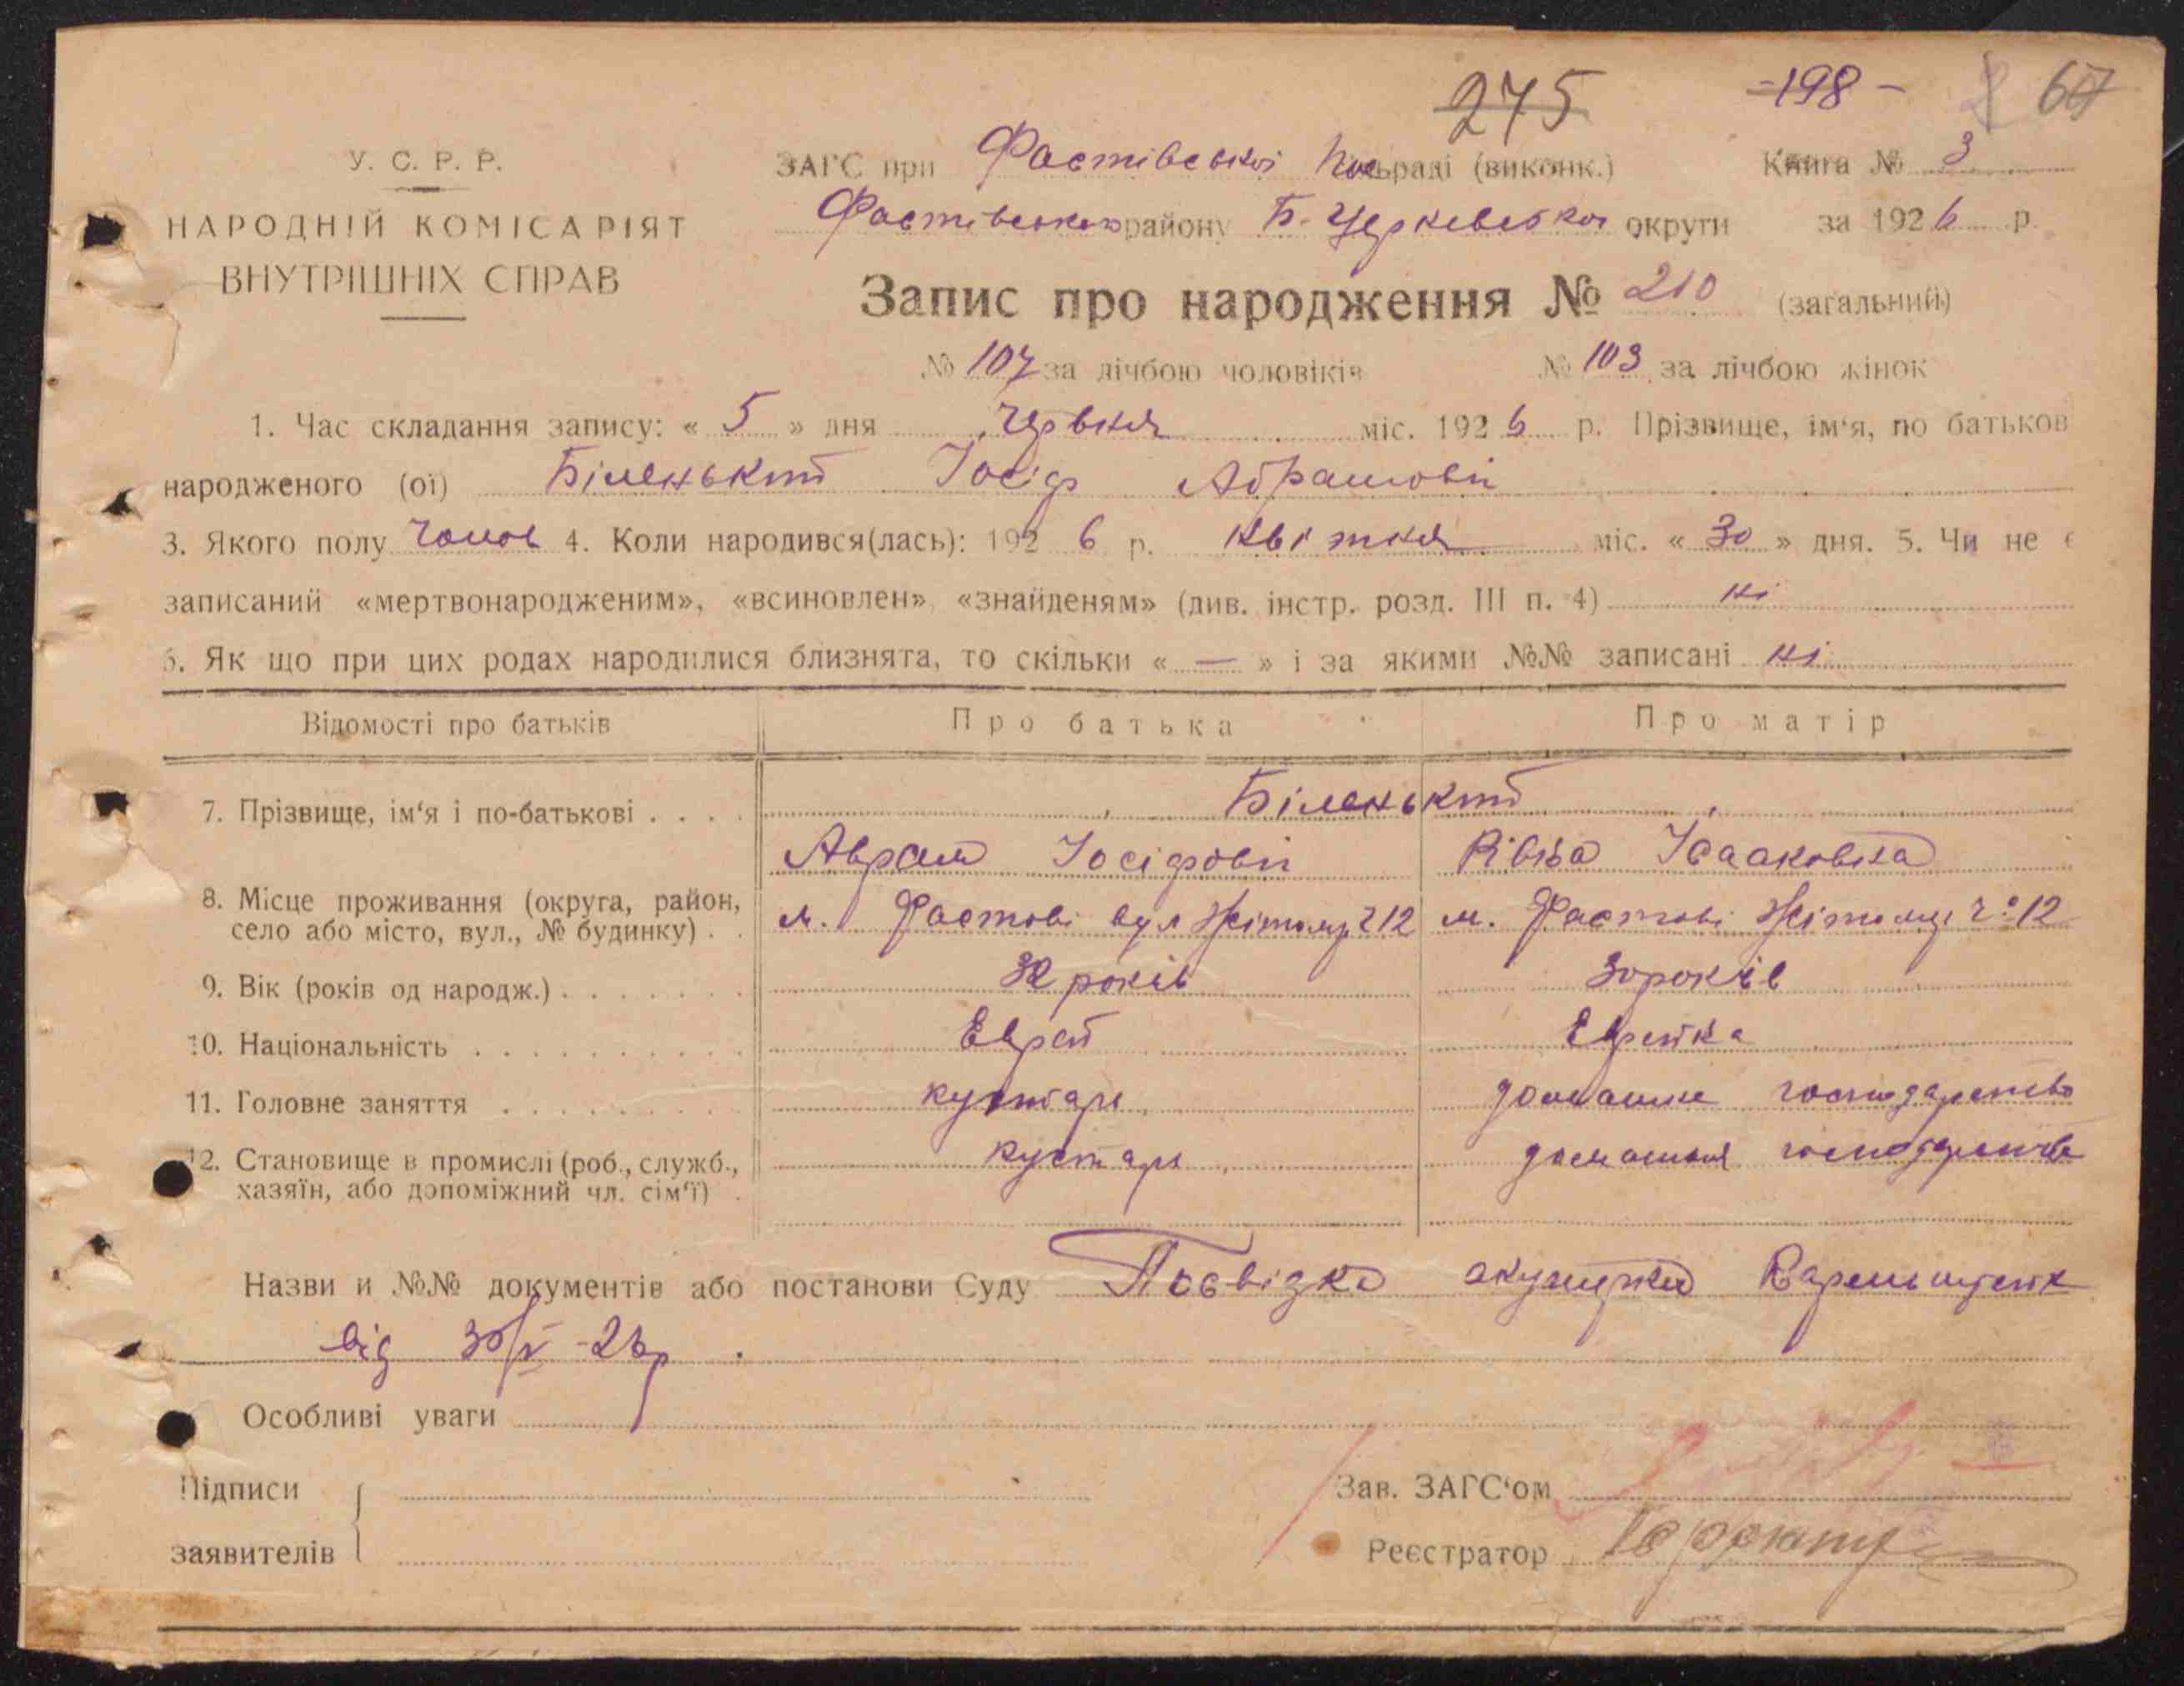 275 -198- 67
У. С. Р. Р.
НАРОДНІЙ КОМІСАРІЯТ
ВНУТРІШНІХ СПРАВ
ЗАГС при Фастівської сьраді (виконк.) Книга № 3
Фастівського району Б-Церківської округи за 1926 р.
Запис про народження № 210 (загальний)
№ 107 за лічбою чоловіків № 103 за лічбою жінок
1. Час складання запису: « 5 » дня Червня міс. 1926 р. Прізвище, ім‘я, по батьков
народженого (ої) Біленький Іосіф Абрамовіч
3. Якого полу Чолов 4. Коли народився(лась): 1926 р. Квітня міс. « 30 » дня. 5. Чи не є
записаний «мертвонародженим», «всиновлен», «знайденям» (див. інстр. розд. III п. 4) ні
6. Як що при цих родах народилися близнята, то скільки « — » і за якими №№ записані ні
Відомості про батьків Про батька Про матір
7. Прізвище, ім‘я і по-батькові . . . . Біленький
Аврам Іосіфовіч Рівка Ісааковна
8. Місце проживання (округа, район,
село або місто, вул., № будинку) . . м. Фастові вул Жітомір ч 12 м. Фастові Жітомір ч° 12
9. Вік (років од народж.) . . . . . . . 32 років 30 років
10. Національність . . . . . . . . . . Еврей Еврейка
11. Головне заняття . . . . . . . . . кустарь домашне господарство
12. Становище в промислі (роб., служб.,
хазяїн, або допоміжний чл. сім‘ї) . кустарь домашня господарство
Назви и №№ документів або постанови Суду Посвідка акушерки
від 30/IV-26р
Особливі уваги
Підписи
заявителів
Зав. ЗАГС‘ом
Реєстратор